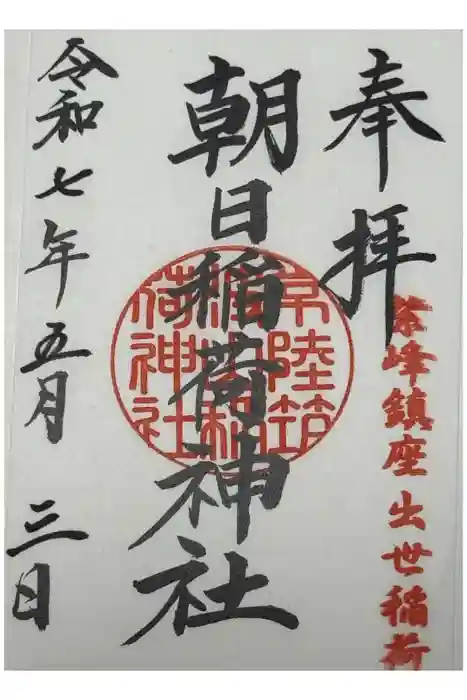 奉拝
紫峰鎮座出世稲荷
朝日稲荷神社
常陸筑
波山稲
荷神社
令和七年五月三日